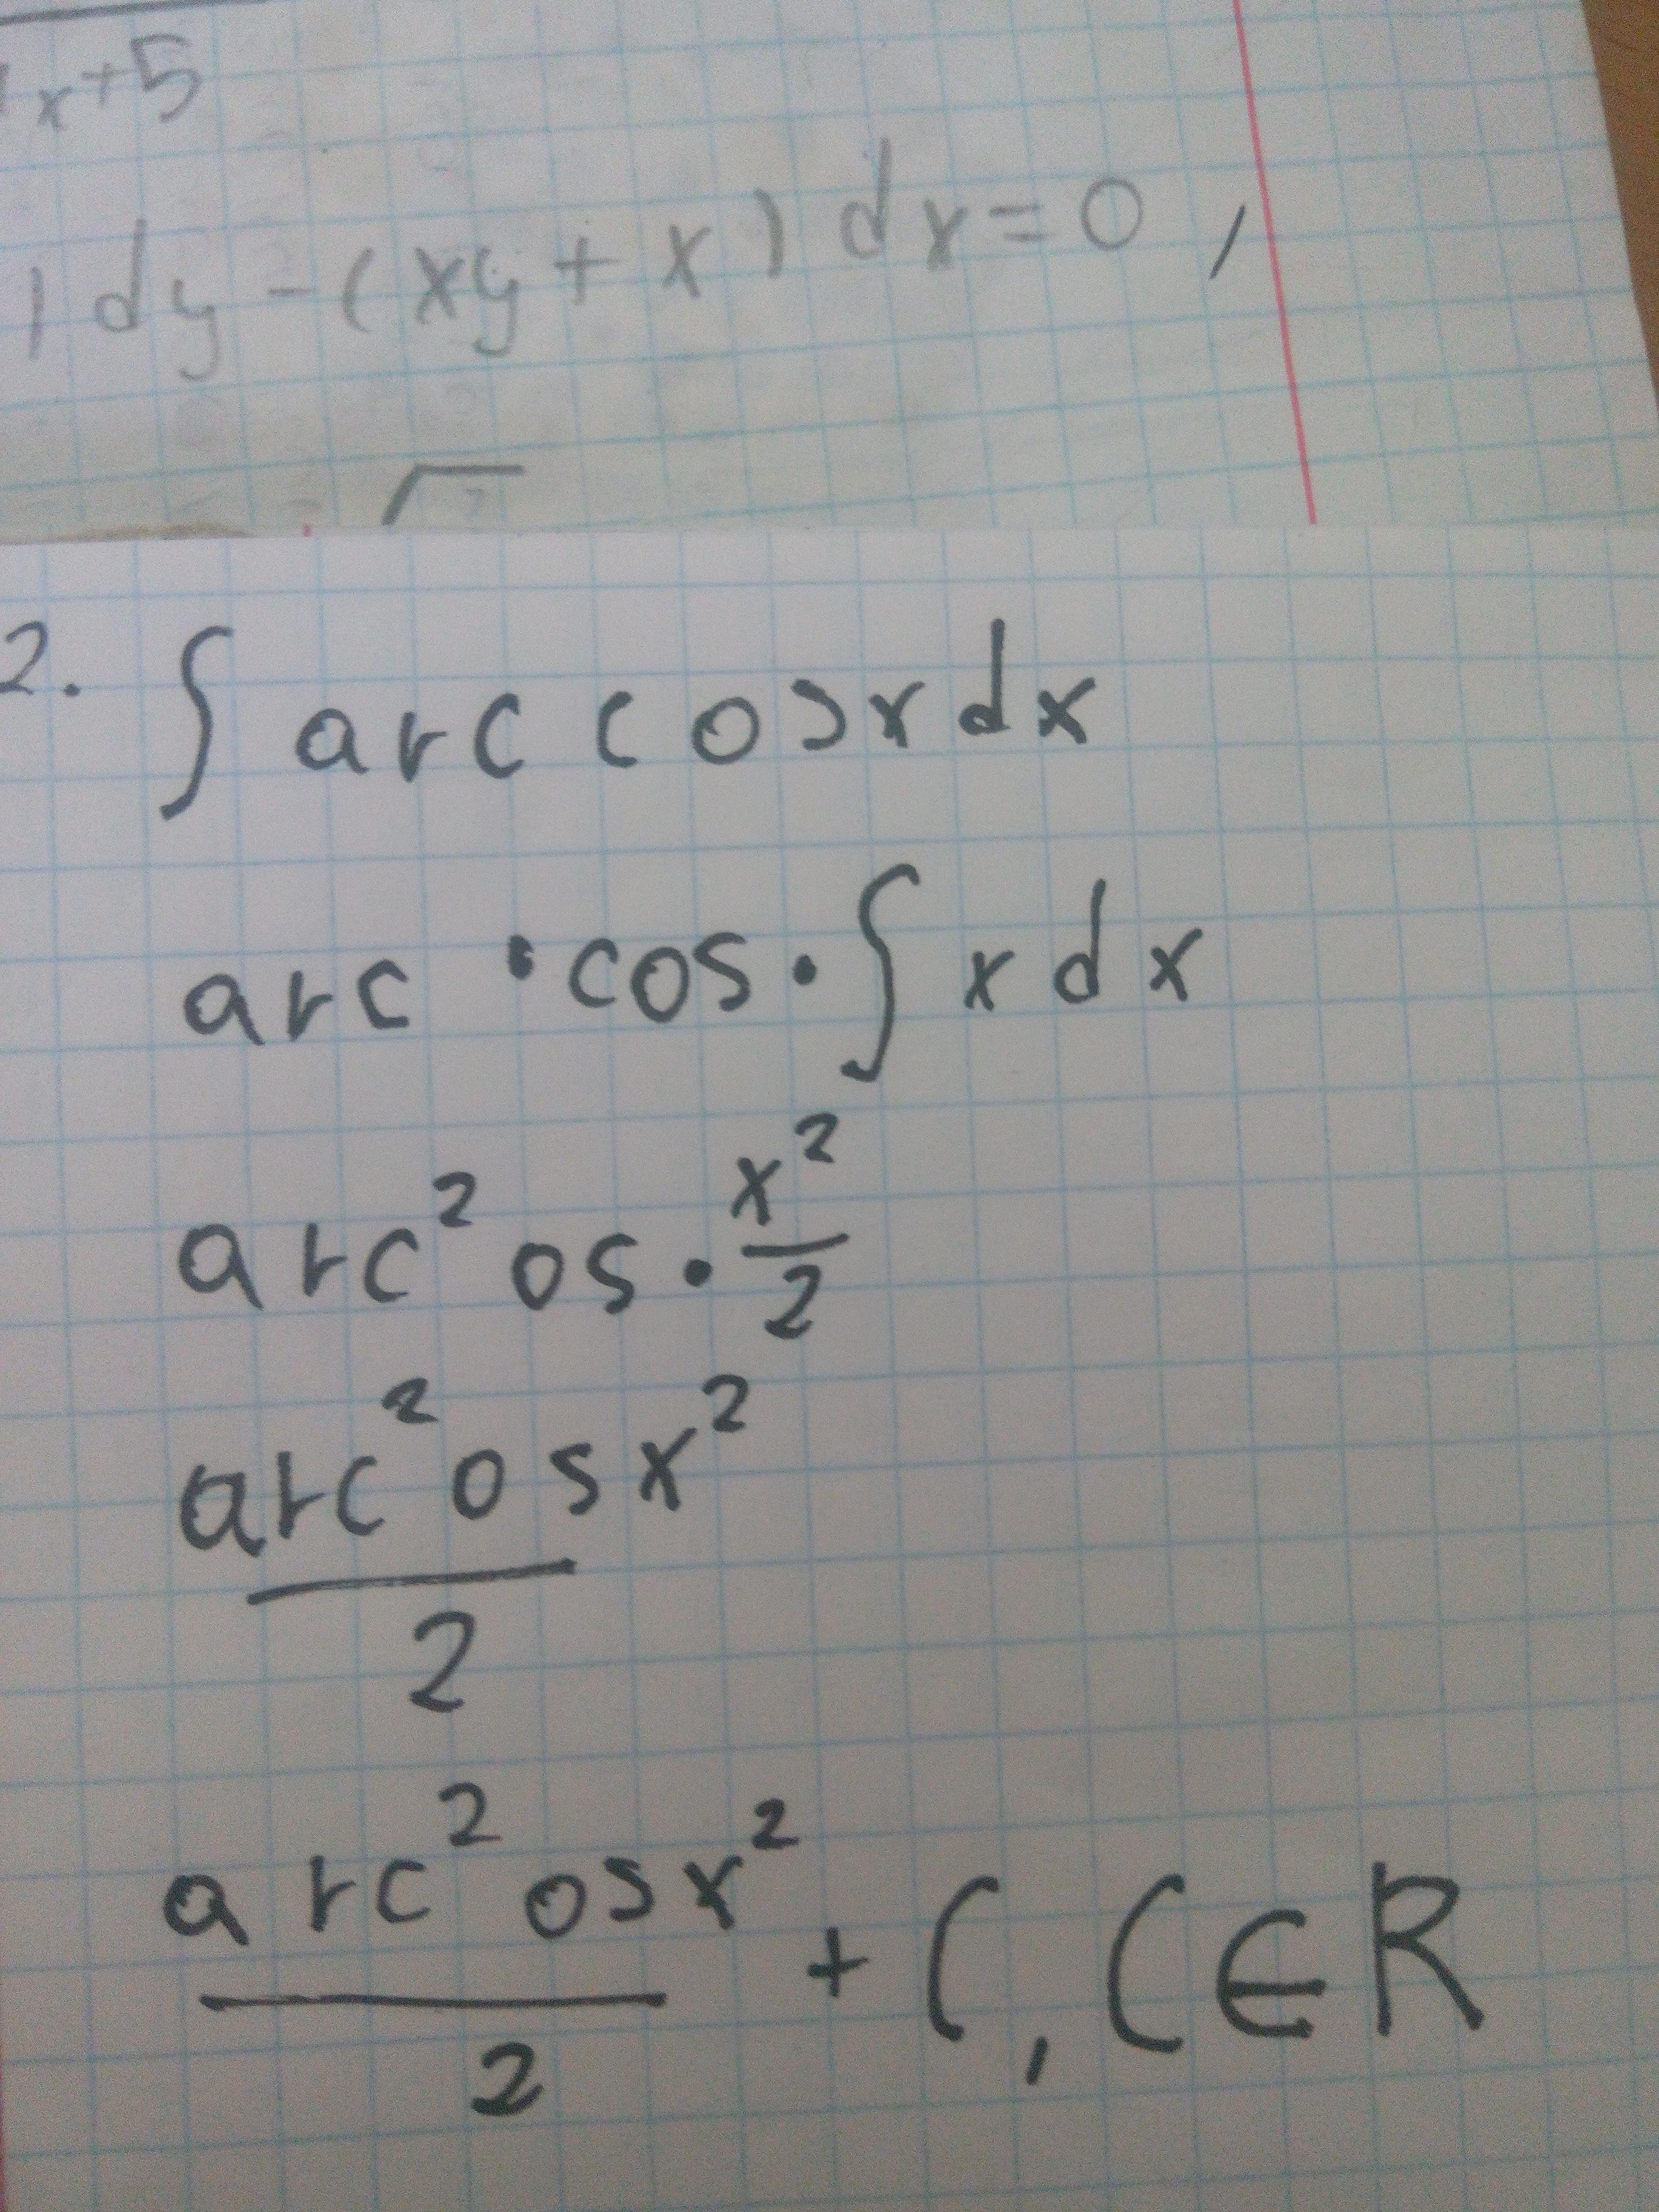 x+5
) dy - (xy + x) dx = 0,
√
2. ∫ arc cosx dx
arc · cos · ∫ x dx
arc² os · x²/2
arc² os x²
2
arc² os x²/2 + C, C ∈ R